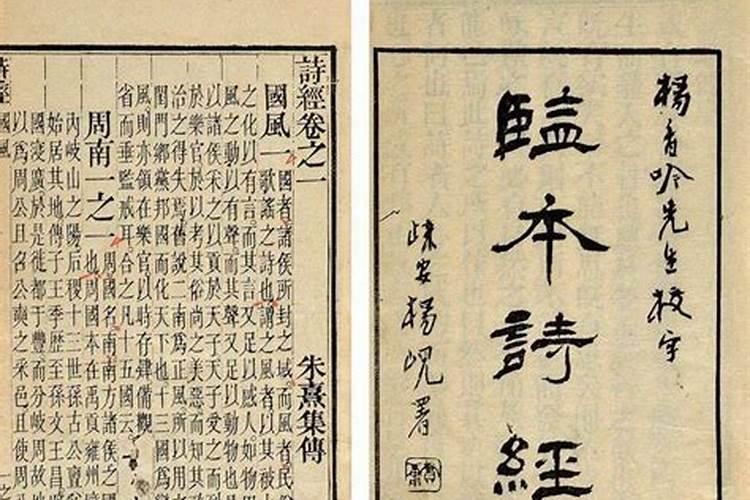 楊香吟先生校字
監本詩經
歸安楊峴署
詩經卷之一
朱熹集傳
國風一
國者諸侯所封之域而風者民俗
歌謠之詩也謂之風者以其被上
之化以有言而其言又足以感人如物因
風之動以有聲而其聲又足以動物也
以諸侯采之以貢於天子天子受之而列
於樂官於以考其俗尚之美惡而知其政
治之得失焉舊說二南爲正風所以用
閨門鄉黨邦國而化天下也十三國爲
風則亦領在樂官以時存肄備觀
省而垂監戒耳合之凡十五國云
周南一之一
周國名南南方諸侯之國
也周國本在禹貢雍州
內岐山之陽后稷十三世孫古公亶
始居其地傳子王季歷至孫文王昌
國寖廣於是徙都于豐而分岐周故
以爲周公旦召公奭之采邑且使周
詩經
國風